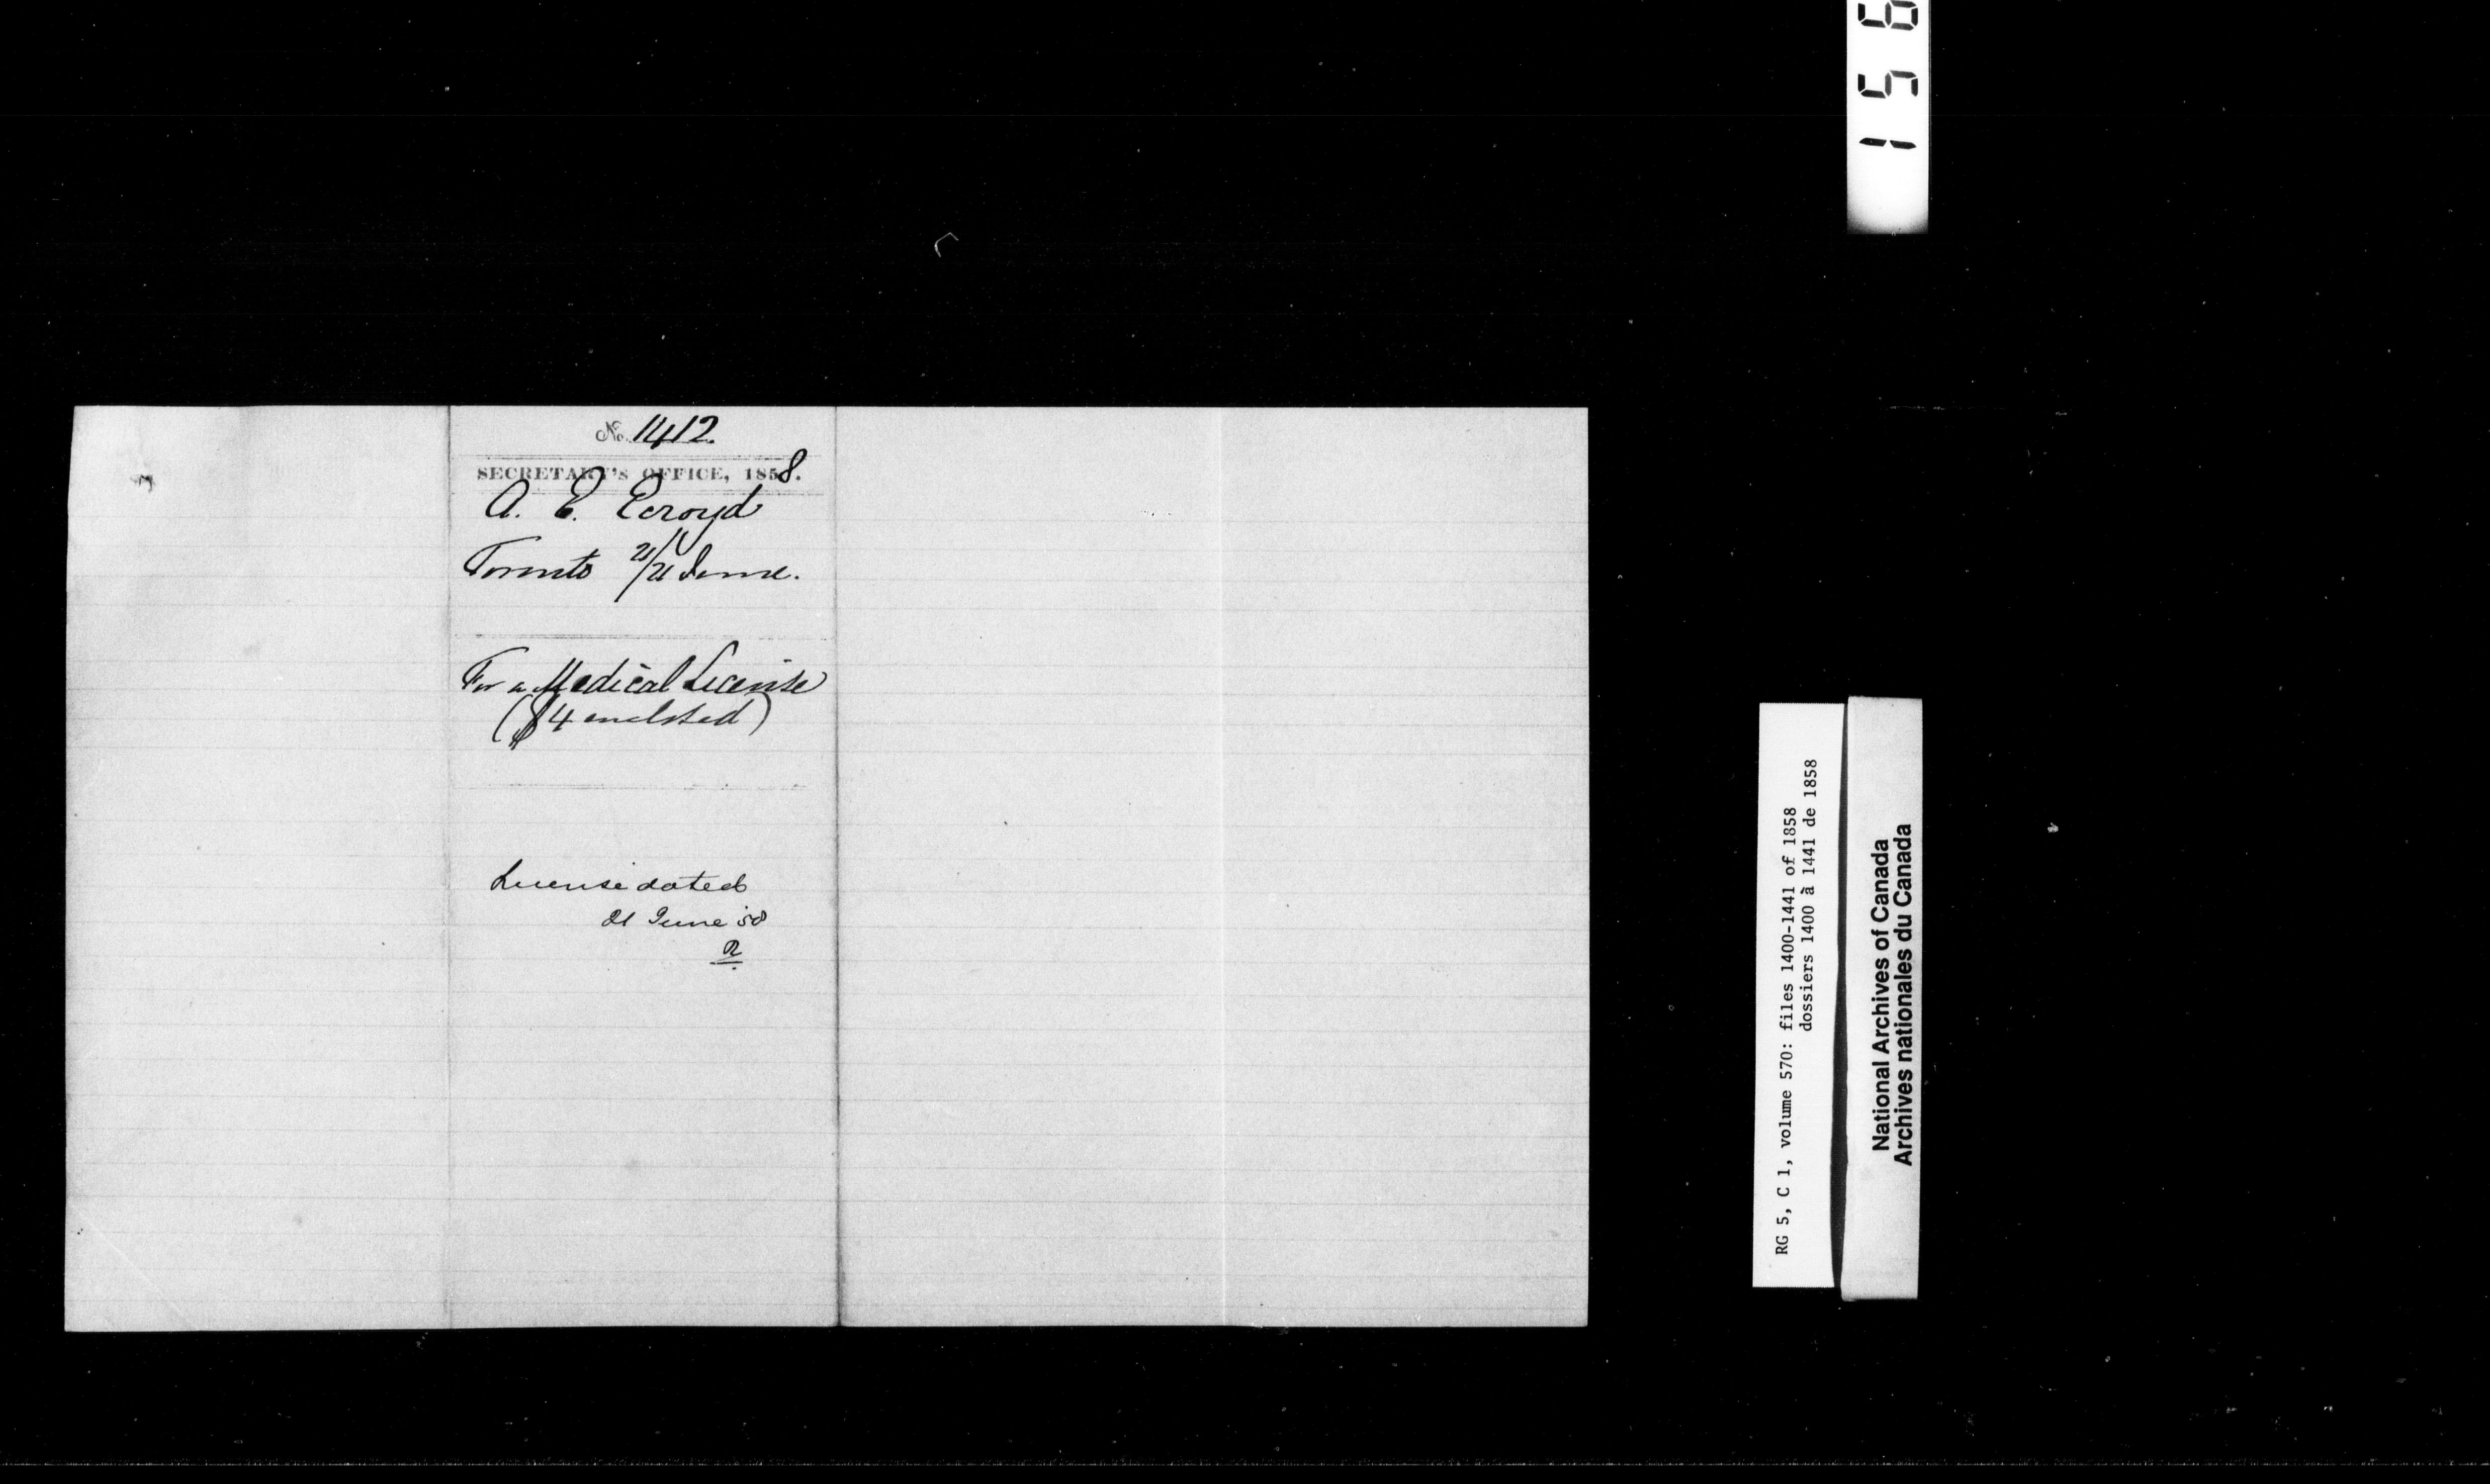 No. 1412.
SECRETARY'S OFFICE, 1858.
A. E. Ecroyd
Toronto 21/21 June.
For a Medical License
($4 enclosed)
License dated
21 June '58
R
156
RG 5, C 1, volume 570: files 1400-1441 of 1858
dossiers 1400 à 1441 de 1858
National Archives of Canada
Archives nationales du Canada